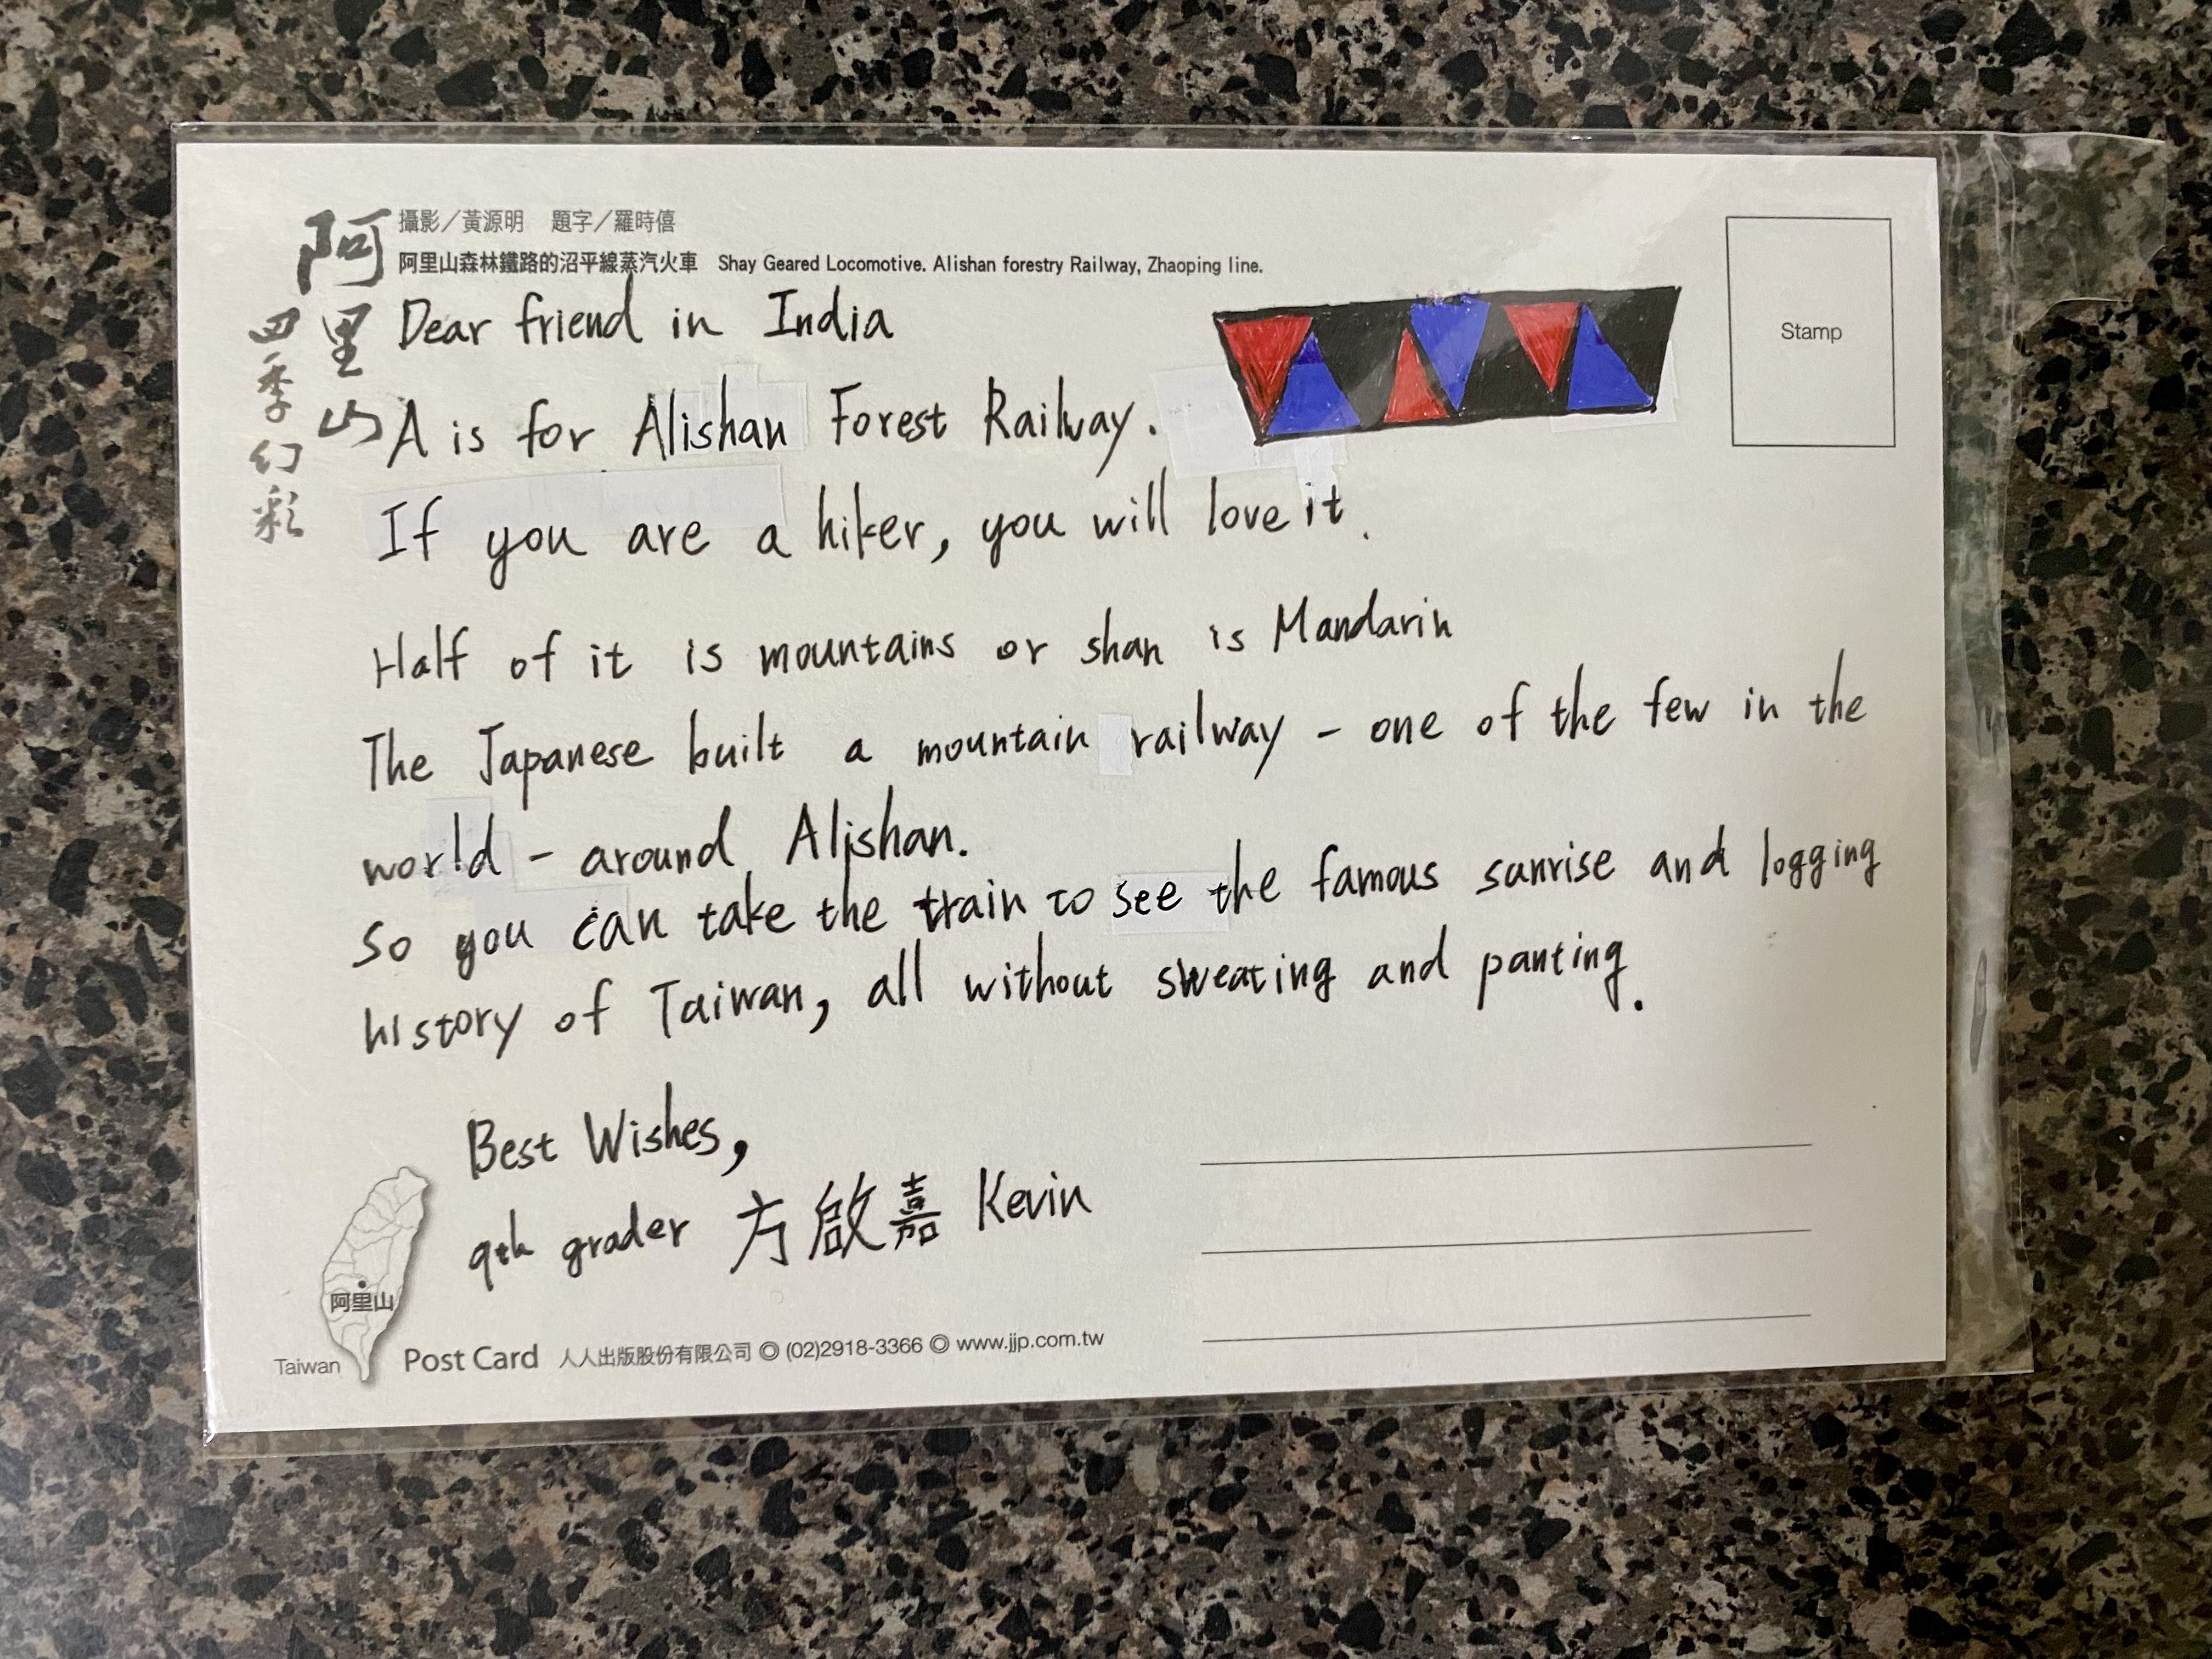 攝影／黃源明 題字／羅時僖
阿里山森林鐵路的沼平線蒸汽火車 Shay Geared Locomotive. Alishan forestry Railway, Zhaoping line.
阿里山
四季幻彩
Stamp
Dear friend in India
A is for Alishan Forest Railway.
If you are a hiker, you will love it.
Half of it is mountains or shan is Mandarin
The Japanese built a mountain railway - one of the few in the
world - around Alishan.
So you can take the train to see the famous sunrise and logging
history of Taiwan, all without sweating and panting.
Best Wishes,
9th grader 方啟嘉 Kevin
阿里山
Taiwan
Post Card 人人出版股份有限公司 ◎ (02)2918-3366 ◎ www.jjp.com.tw